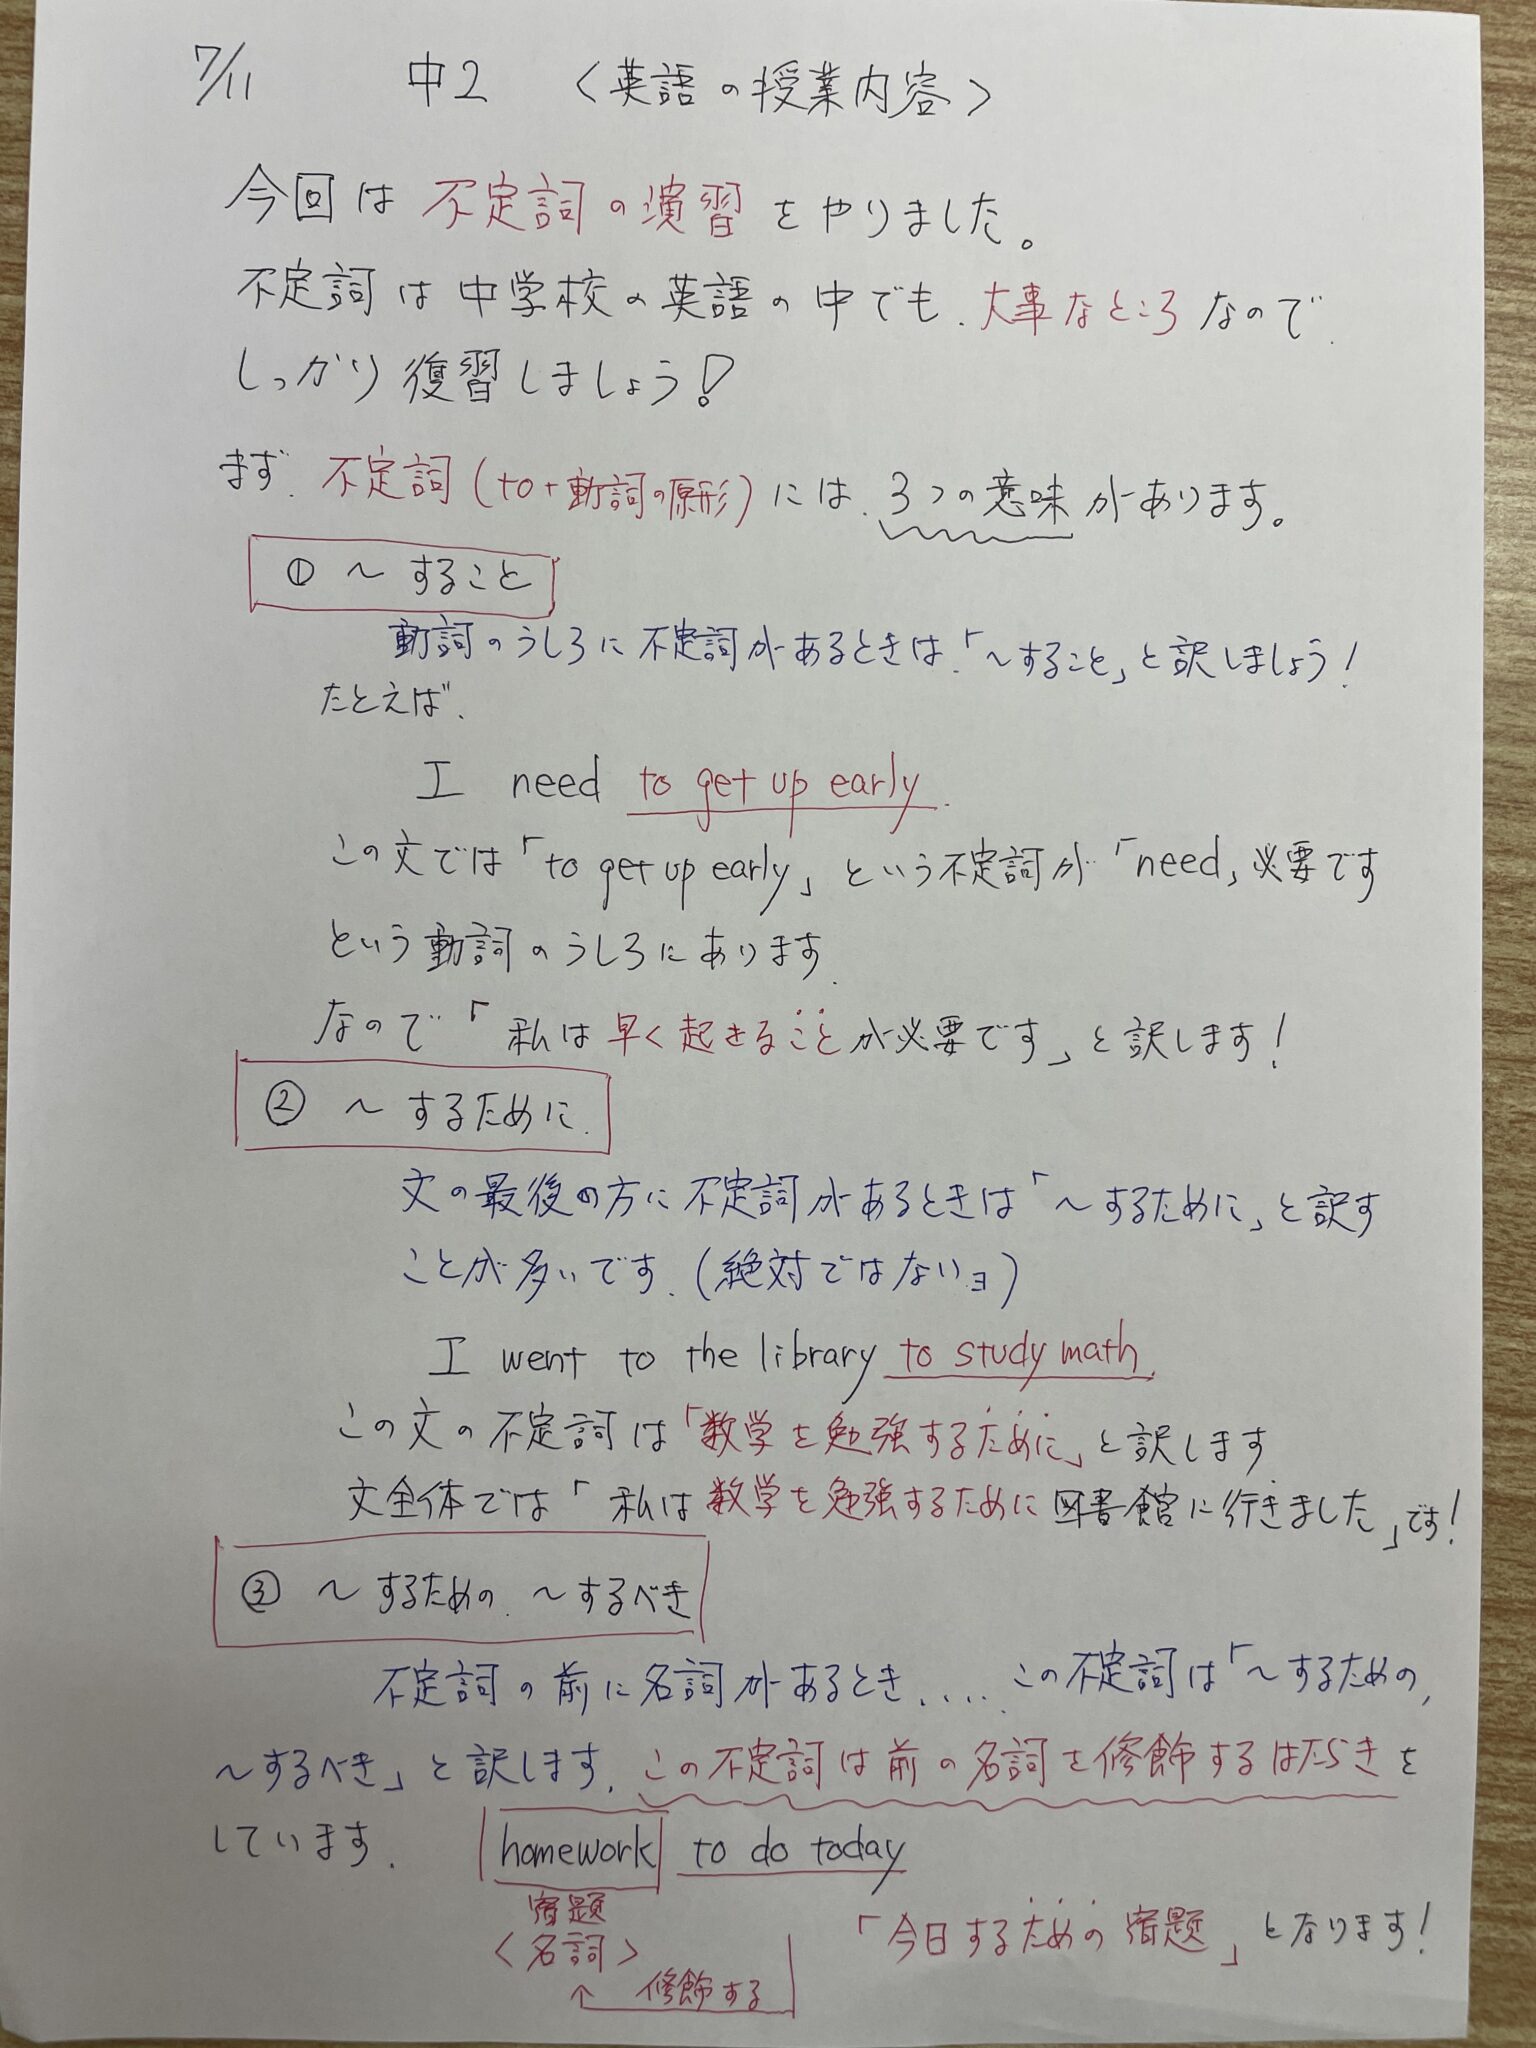 7/11 中2 〈英語の授業内容〉
今回は不定詞の演習をやりました。
不定詞は中学校の英語の中でも、大事なところなので、
しっかり復習しましょう!
まず、不定詞(to+動詞の原形)には、3つの意味があります。
① 〜すること
動詞のうしろに不定詞があるときは、「〜すること」と訳しましょう!
たとえば、
I need to get up early.
この文では「to get up early」という不定詞が「need」必要です
という動詞のうしろにあります。
なので「私は早く起きることが必要です」と訳します!
② 〜するために、
文の最後の方に不定詞があるときは「〜するために」と訳す
ことが多いです。(絶対ではないヨ)
I went to the library to study math.
この文の不定詞は「数学を勉強するために」と訳します
文全体では「私は数学を勉強するために図書館に行きました」です!
③ 〜するための、〜するべき
不定詞の前に名詞があるとき、.... この不定詞は「〜するための,
〜するべき」と訳します。この不定詞は前の名詞を修飾するはたらきを
しています。 homework to do today
宿題
〈名詞〉 「今日するための宿題」となります!
↑ 修飾する